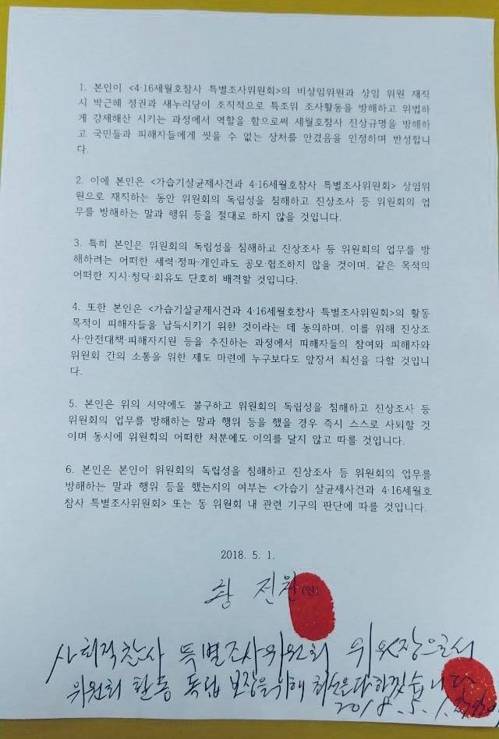 1. 본인이 <4·16세월호참사 특별조사위원회>의 비상임위원과 상임 위원 재직
시 박근혜 정권과 새누리당이 조직적으로 특조위 조사활동을 방해하고 위법하
게 강제해산 시키는 과정에서 역할을 함으로써 세월호참사 진상규명을 방해하
고 국민들과 피해자들에게 씻을 수 없는 상처를 안겼음을 인정하며 반성합니
다.
2. 이에 본인은 <가습기살균제사건과 4·16세월호참사 특별조사위원회> 상임위
원으로 재직하는 동안 위원회의 독립성을 침해하고 진상조사 등 위원회의 업
무를 방해하는 말과 행위 등을 절대로 하지 않을 것입니다.
3. 특히 본인은 위원회의 독립성을 침해하고 진상조사 등 위원회의 업무를 방
해하려는 어떠한 세력·정파·개인과도 공모·협조하지 않을 것이며, 같은 목적의
어떠한 지시·청탁·회유도 단호히 배격할 것입니다.
4. 또한 본인은 <가습기살균제사건과 4·16세월호참사 특별조사위원회>의 활동
목적이 피해자들을 납득시키기 위한 것이라는 데 동의하며, 이를 위해 진상조
사·안전대책·피해자지원 등을 추진하는 과정에서 피해자들의 참여와 피해자와
위원회 간의 소통을 위한 제도 마련에 누구보다도 앞장서 최선을 다할 것입니
다.
5. 본인은 위의 서약에도 불구하고 위원회의 독립성을 침해하고 진상조사 등
위원회의 업무를 방해하는 말과 행위 등을 했을 경우 즉시 스스로 사퇴할 것
이며 동시에 위원회의 어떠한 처분에도 이의를 달지 않고 따를 것입니다.
6. 본인은 본인이 위원회의 독립성을 침해하고 진상조사 등 위원회의 업무를
방해하는 말과 행위 등을 했는지의 여부는 <가습기 살균제사건과 4·16세월호
참사 특별조사위원회> 또는 동 위원회 내 관련 기구의 판단에 따를 것입니다.
2018. 5. 1.
황 전원 (인)
사회적참사 특별조사위원회 위원장으로서
위원회 활동 독립 보장을 위해 최선을 다하겠습니다
2018. 5. 1.